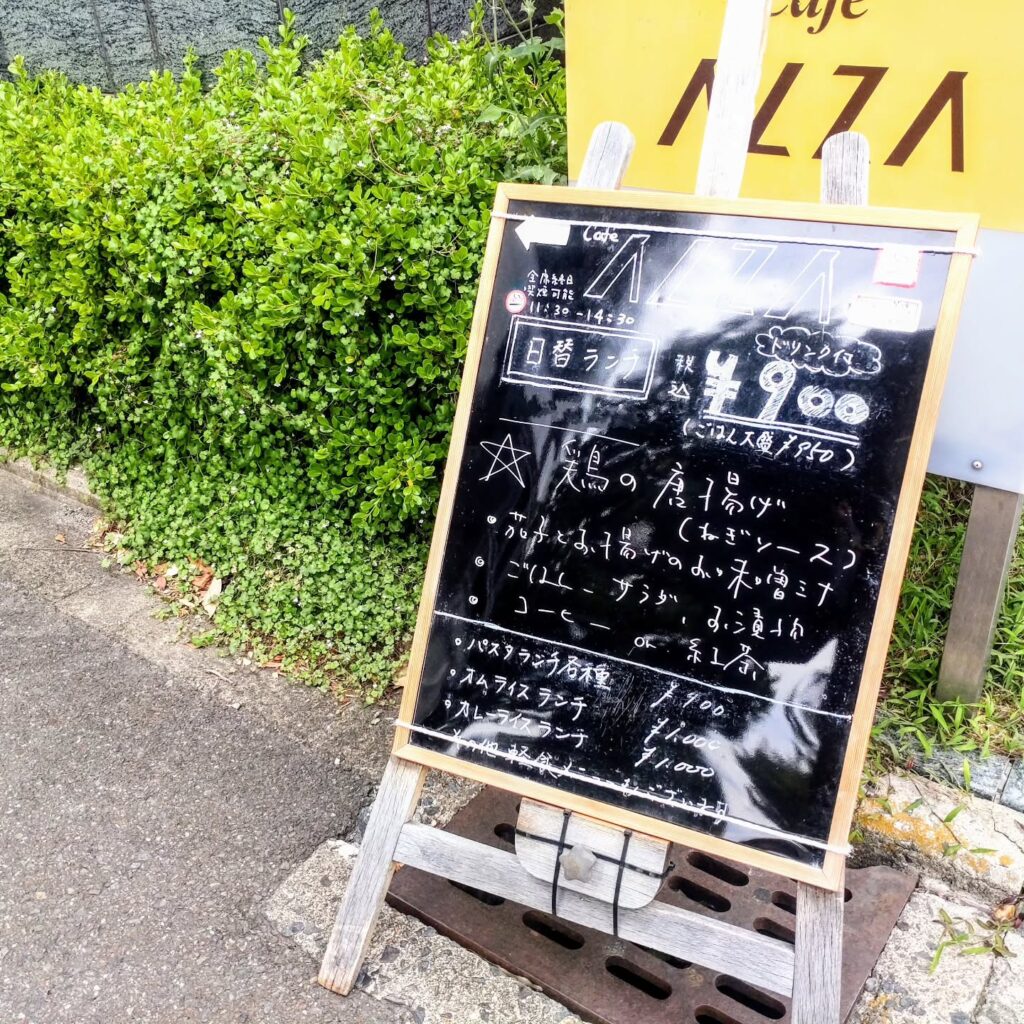 Cafe
ALZA
Cafe ALZA
全席終日
喫煙可能
11:30-14:30
日替ランチ
ドリンク付
税込
¥900
(ごはん大盛¥950)
☆鶏の唐揚げ
(ねぎソース)
茄子とお揚げのお味噌汁
ごはん サラダ、お漬物
コーヒー or 紅茶
パスタランチ各種 ¥900
オムライスランチ ¥1.000
カレーライスランチ ¥1.000
その他軽食メニューもございます